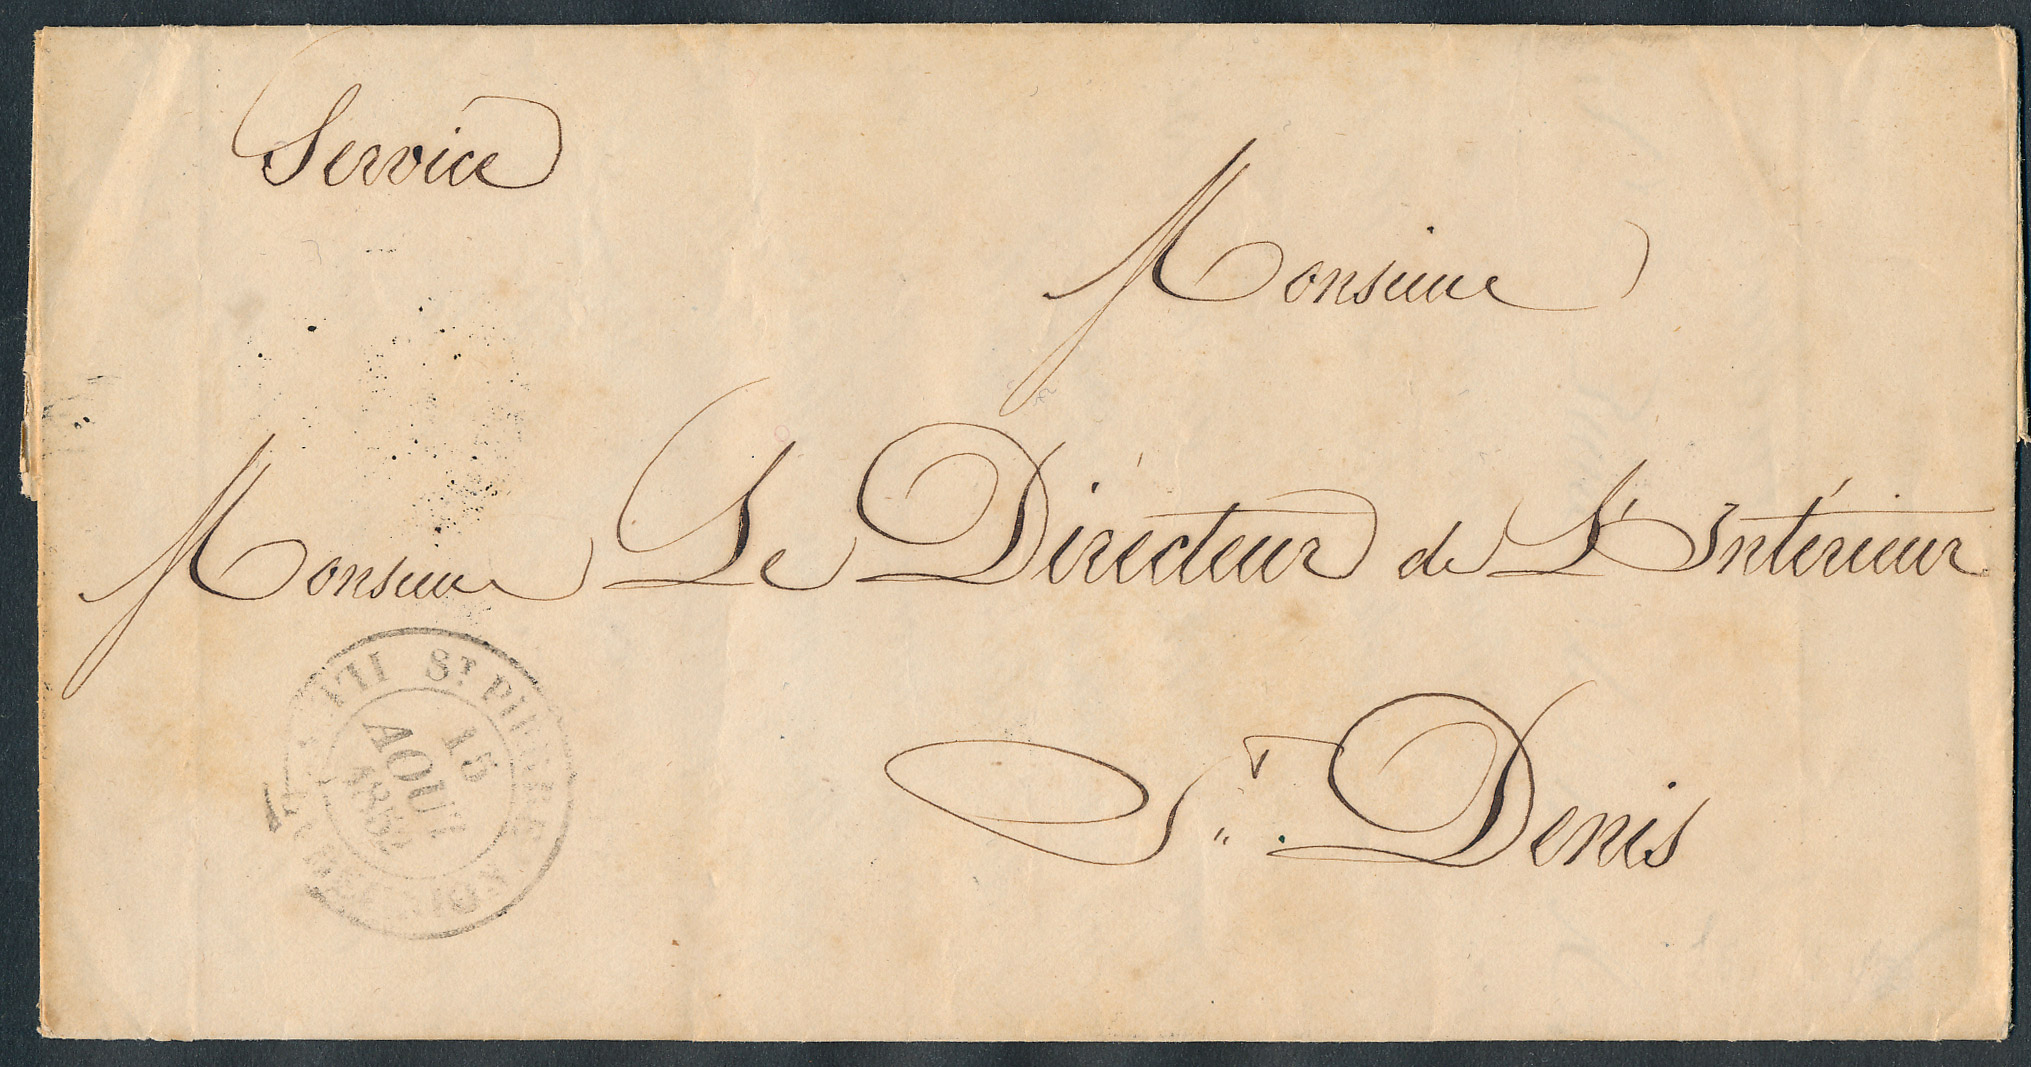 Service
Monsieur
Monsieur Le Directeur de L'Intérieur
St. Denis
ST PIERRE
15
AOUT
1852
REUNION